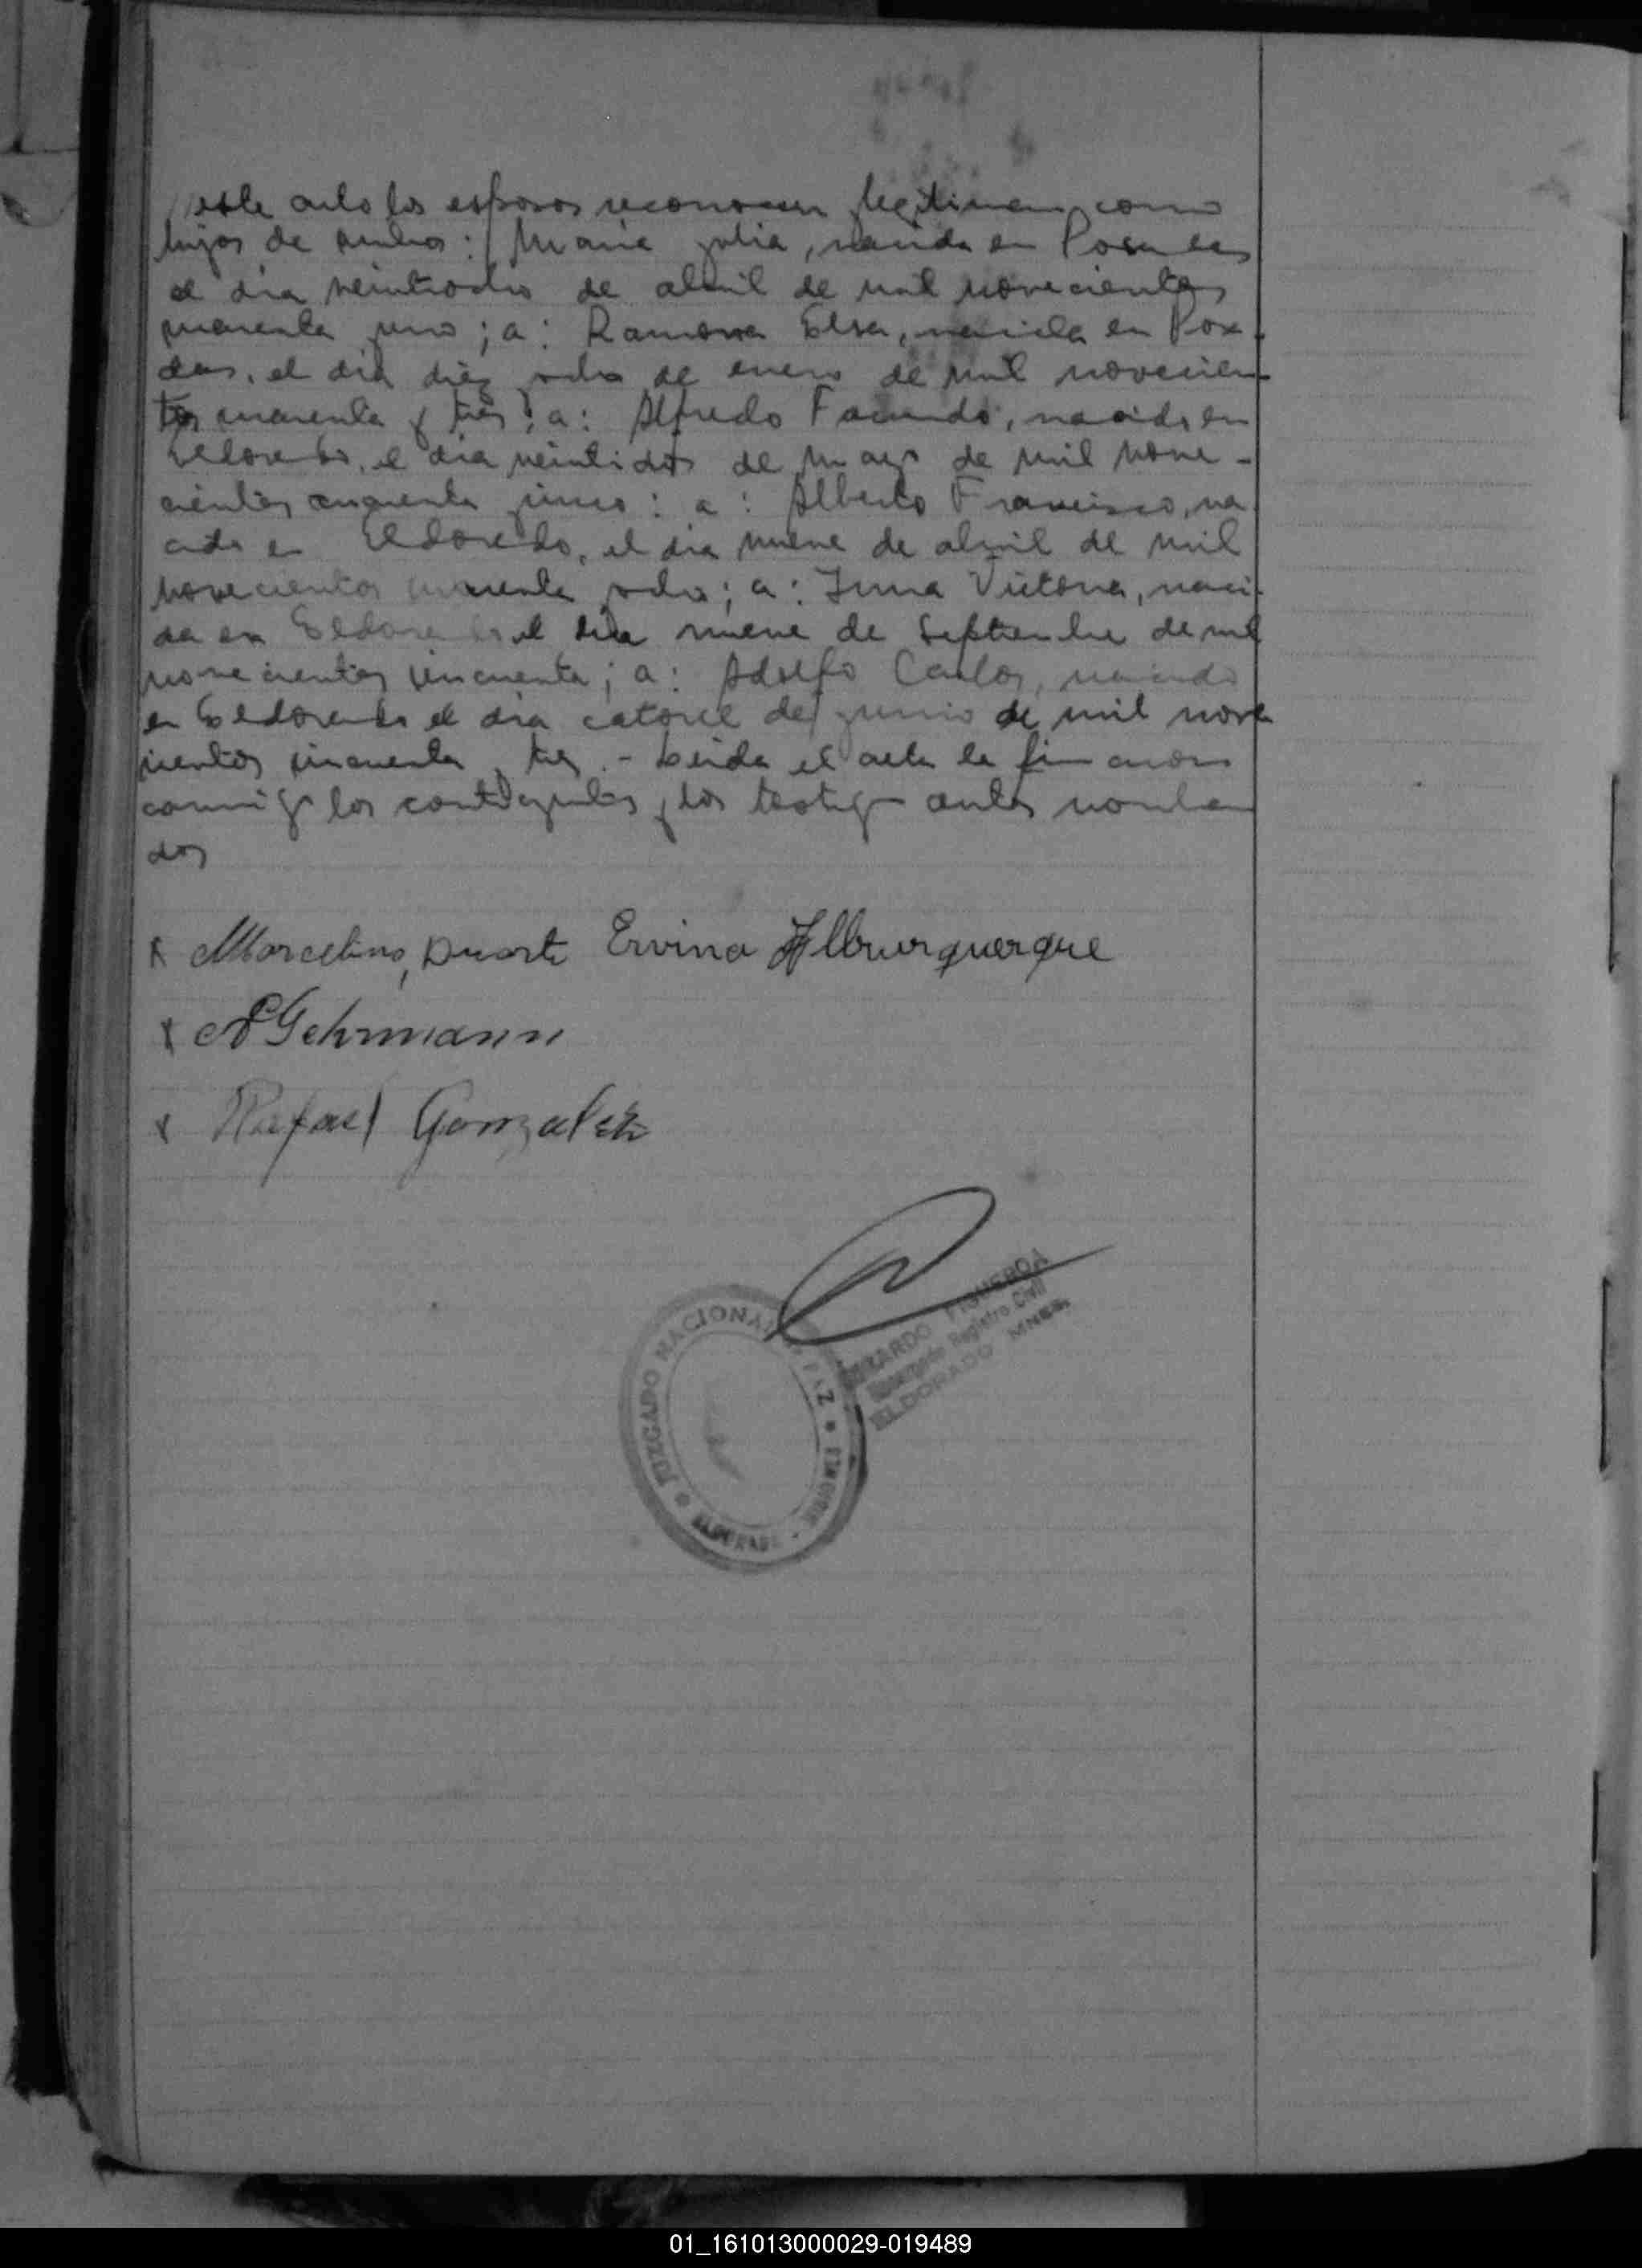 este acto los esposos reconocen y legitiman como
hijos de ambos: Maria Julia, nacida en Posadas
el día veintiocho de abril de mil novecientos
cuarenta y uno; a: Ramona Elsa, nacida en Posa-
das, el día diez y ocho de enero de mil novecien-
tos cuarenta y tres; a: Alfredo Facundo, nacido en
Eldorado, el día veintidós de mayo de mil nove-
cientos cuarenta y cinco: a: Alberto Francisco, na
cido en Eldorado, el día nueve de abril de mil
novecientos cuarenta y ocho; a: Irma Victoria, naci-
da en Eldorado el día nueve de septiembre de mil
novecientos cincuenta; a: Adolfo Carlos, nacido
en Eldorado el día catorce de junio de mil nove
cientos cincuenta y tres.- Leida el acta la firmaron
conmigo los contrayentes y los testigos antes nombra
dos
x Marcelino Duarte Ervina Alburquerque
x A Gehrmann
x Rafael Gonzalez
JUZGADO NACIONAL PAZ
ELDORADO - MISIONES
FIGUEROA
Encargado Registro Civil
ELDORADO MNES.
01_161013000029-019489